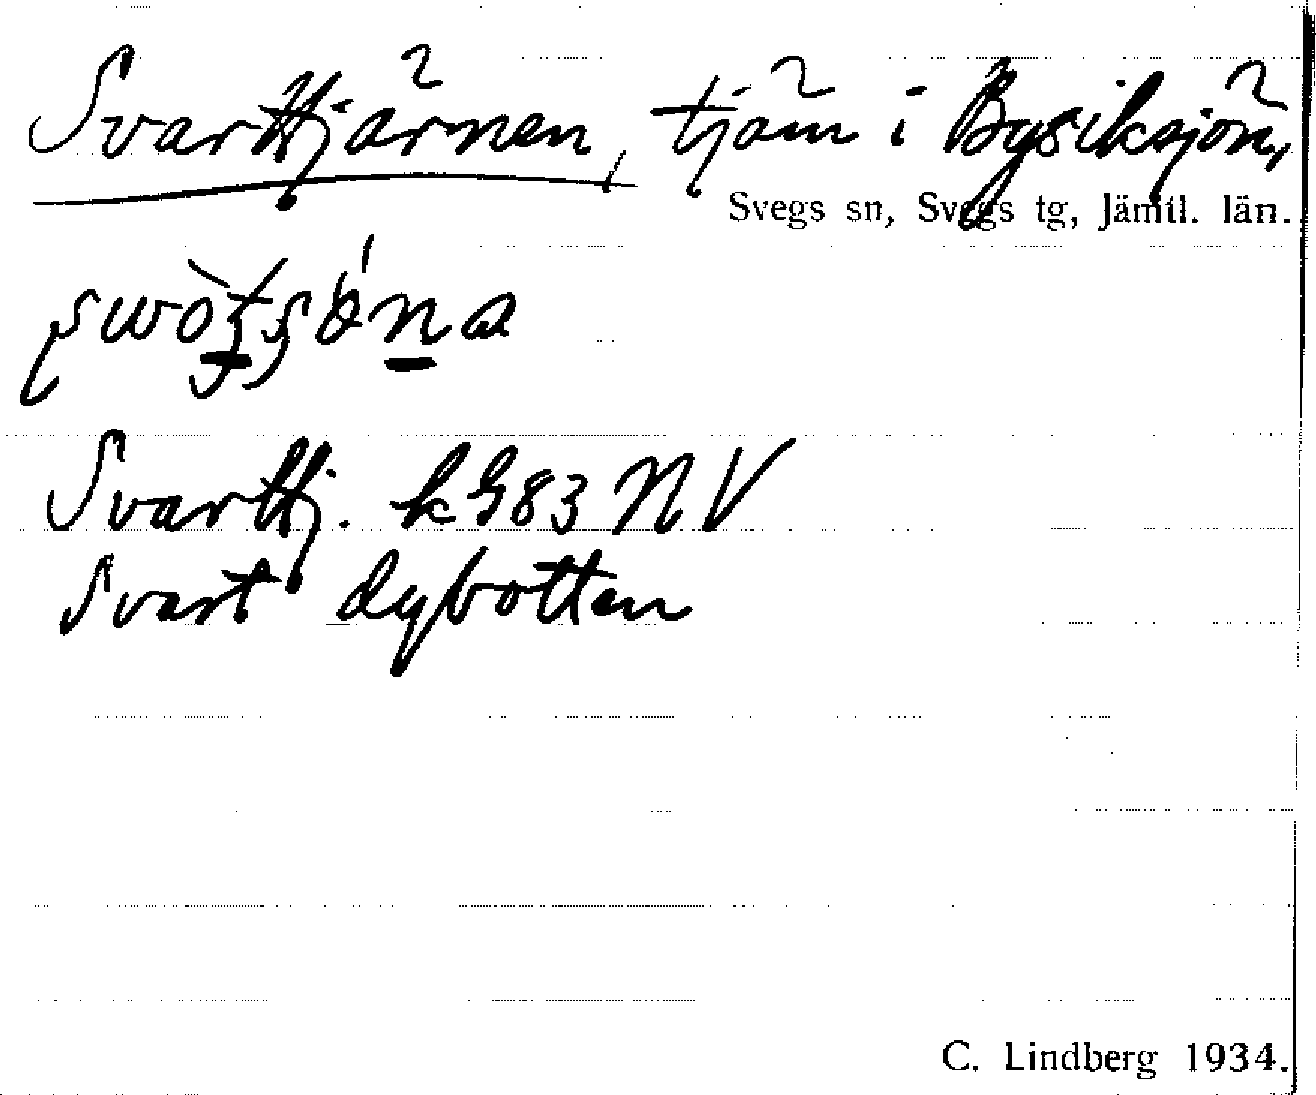 Svarttjärnen, tjärn i Bysiksjön,
Svegs sn, Svegs tg, Jämtl. län.
Svarttj. k G83 NV
Svart dybotten
C. Lindberg 1934.